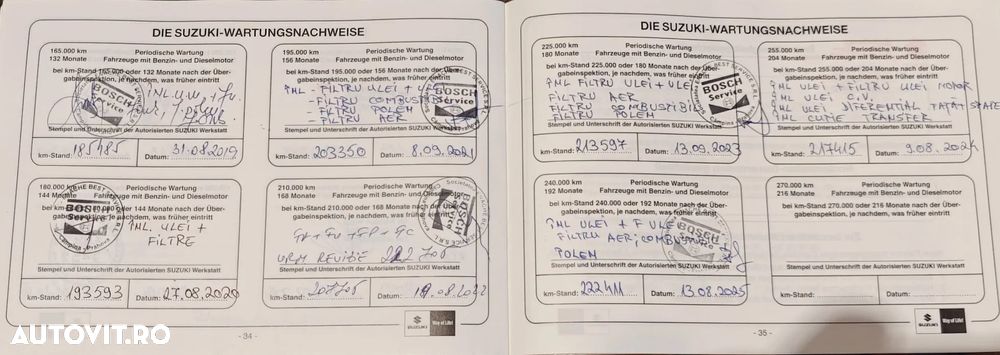 DIE SUZUKI-WARTUNGSNACHWEISE
165.000 km
132 Monate
Periodische Wartung
Fahrzeuge mit Benzin- und Dieselmotor
bei km-Stand 165 000 oder 132 Monate nach der Über-
gabeinspektion, je nachdem, was früher eintritt
BOSCH
Service
Stempel und Unterschrift der Autorisierten SUZUKI Werkstatt
km-Stand: 185485
Datum: 31.08.2019
195.000 km
156 Monate
Periodische Wartung
Fahrzeuge mit Benzin- und Dieselmotor
bei km-Stand 195 000 oder 156 Monate nach der Über-
gabeinspektion, je nachdem, was früher eintritt
ÎNL - FILTRU ULEI +
- FILTRU COMBUSTIB
- FILTRU POLEM
- FILTRU AER
BOSCH
Service
Stempel und Unterschrift der Autorisierten SUZUKI Werkstatt
km-Stand: 203350
Datum: 8.09.2021
180.000 km
144 Monate
Periodische Wartung
Fahrzeuge mit Benzin- und Dieselmotor
oder 144 Monate nach der Über-
gabeinspektion, je nachdem, was früher eintritt
BOSCH
Service
ÎNL. ULEI +
FILTRE
Stempel und Unterschrift der Autorisierten SUZUKI Werkstatt
km-Stand: 193593
Datum: 27.08.2020
210.000 km
168 Monate
Periodische Wartung
Fahrzeuge mit Benzin- und Dieselmotor
bei km-Stand 210 000 oder 168 Monate nach der Über-
gabeinspektion, je nachdem, was früher eintritt
BOSCH
Service
URM REVIZIE
Stempel und Unterschrift der Autorisierten SUZUKI Werkstatt
km-Stand: 207705
Datum:
SUZUKI
Way of Life!
- 34 -
DIE SUZUKI-WARTUNGSNACHWEISE
225.000 km
180 Monate
Periodische Wartung
Fahrzeuge mit Benzin- und Dieselmotor
bei km-Stand 225 000 oder 180 Monate nach der Über-
gabeinspektion, je nachdem, was früher eintritt
ÎNL FILTRU ULEI + ULEI
FILTRU AER
FILTRU COMBUSTIBIL
FILTRU POLEM
BOSCH
Service
Stempel und Unterschrift der Autorisierten SUZUKI Werkstatt
km-Stand: 213597
Datum: 13.09.2023
255.000 km
204 Monate
Periodische Wartung
Fahrzeuge mit Benzin- und Dieselmotor
bei km-Stand 255 000 oder 204 Monate nach der Über-
gabeinspektion, je nachdem, was früher eintritt
ÎNL ULEI + FILTRU ULEI MOTOR
ÎNL ULEI C.V.
ÎNL ULEI DIFERENTIAL FATA+SPATE
ÎNL CUTIE TRANSFER
Stempel und Unterschrift der Autorisierten SUZUKI Werkstatt
km-Stand: 217415
Datum: 9.08.2024
240.000 km
192 Monate
Periodische Wartung
Fahrzeuge mit Benzin- und Dieselmotor
bei km-Stand 240 000 oder 192 Monate nach der Über-
gabeinspektion, je nachdem, was früher eintritt
ÎNL ULEI + F ULEI
FILTRU AER; COMBUSTIBIL
POLEM
BOSCH
Service
Stempel und Unterschrift der Autorisierten SUZUKI Werkstatt
km-Stand: 222411
Datum: 13.08.2025
270.000 km
216 Monate
Periodische Wartung
Fahrzeuge mit Benzin- und Dieselmotor
bei km-Stand 270 000 oder 216 Monate nach der Über-
gabeinspektion, je nachdem, was früher eintritt
Stempel und Unterschrift der Autorisierten SUZUKI Werkstatt
km-Stand:
Datum:
SUZUKI
Way of Life!
- 35 -
AUTOVIT.RO